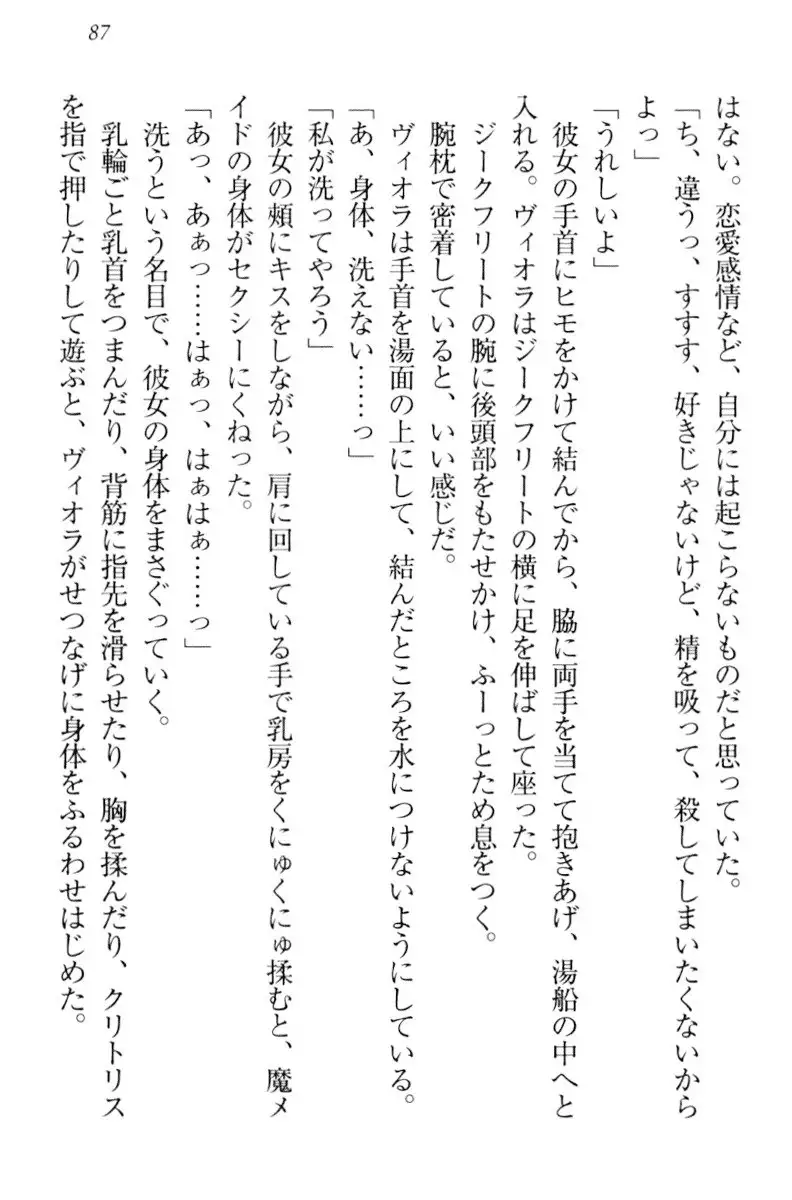 87
はない。恋愛感情など、自分には起こらないものだと思っていた。
「ち、違うっ、すすす、好きじゃないけど、精を吸って、殺してしまいたくないから
よっ」
「うれしいよ」
彼女の手首にヒモをかけて結んでから、脇に両手を当てて抱きあげ、湯船の中へと
入れる。ヴィオラはジークフリートの横に足を伸ばして座った。
ジークフリートの腕に後頭部をもたせかけ、ふーっとため息をつく。
腕枕で密着していると、いい感じだ。
ヴィオラは手首を湯面の上にして、結んだところを水につけないようにしている。
「あ、身体、洗えない……っ」
「私が洗ってやろう」
彼女の頰にキスをしながら、肩に回している手で乳房をくにゅくにゅ揉むと、魔メ
イドの身体がセクシーにくねった。
「あっ、あぁっ……はぁっ、はぁはぁ……っ」
洗うという名目で、彼女の身体をまさぐっていく。
乳輪ごと乳首をつまんだり、背筋に指先を滑らせたり、胸を揉んだり、クリトリス
を指で押したりして遊ぶと、ヴィオラがせつなげに身体をふるわせはじめた。